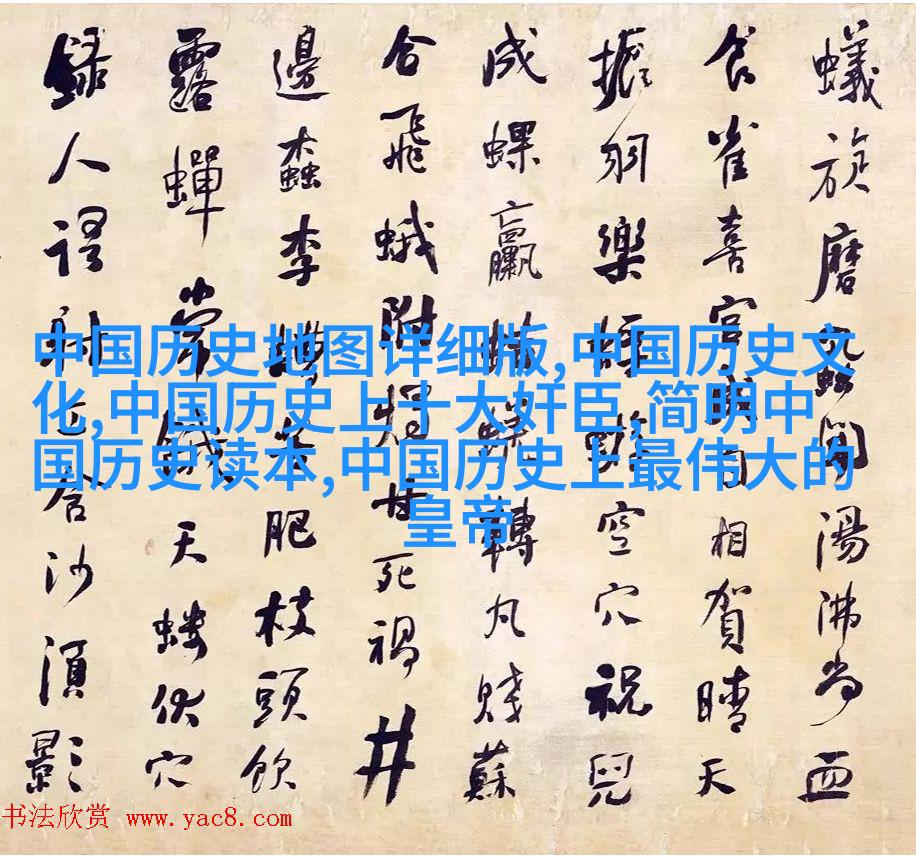 蟻旋磨虱聞湯沸尚血
食雀喜宮相賀晴天
振羽樂蜉空穴祝兒
成蜾蠃轉丸賤蘇
合飛蛾附甘死禍井
邊蠹李肥枝頭飲
露蟬常天螻伏穴
錄人語射含沙須影
中国历史地图详细版,中国历史文
化,中国历史上十大奸臣,简明中
国历史读本,中国历史上最伟大的
皇帝
书法欣赏 www.yac8.com